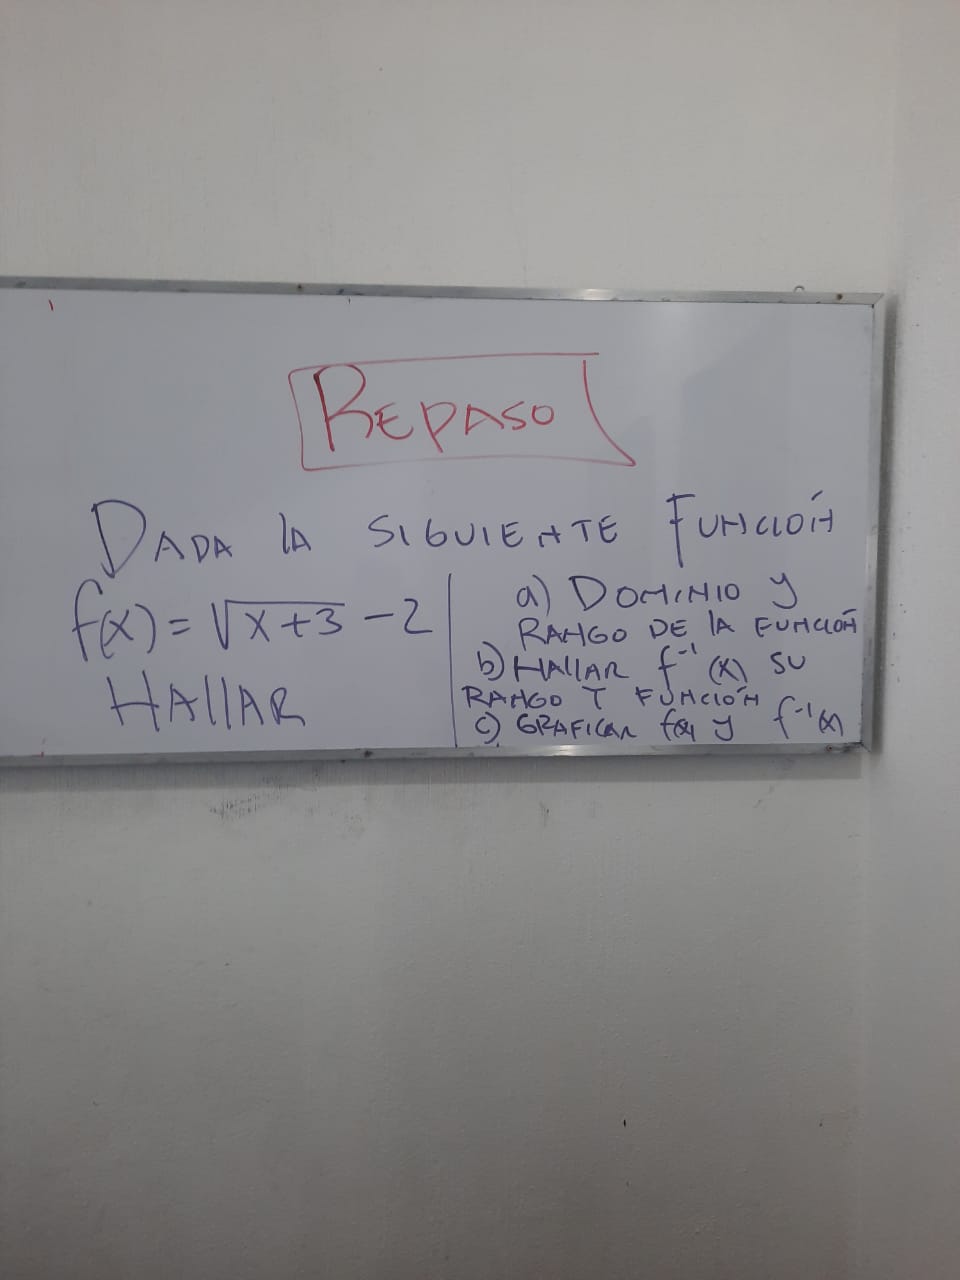 REPASO
DADA LA SIGUIENTE FUNCIÓN
f(x) = √x+3 - 2
HALLAR
a) DOMINIO Y
RANGO DE LA FUNCIÓN
b) HALLAR f⁻¹(x) SU
RANGO Y FUNCIÓN
c) GRAFICAR f(x) y f⁻¹(x)